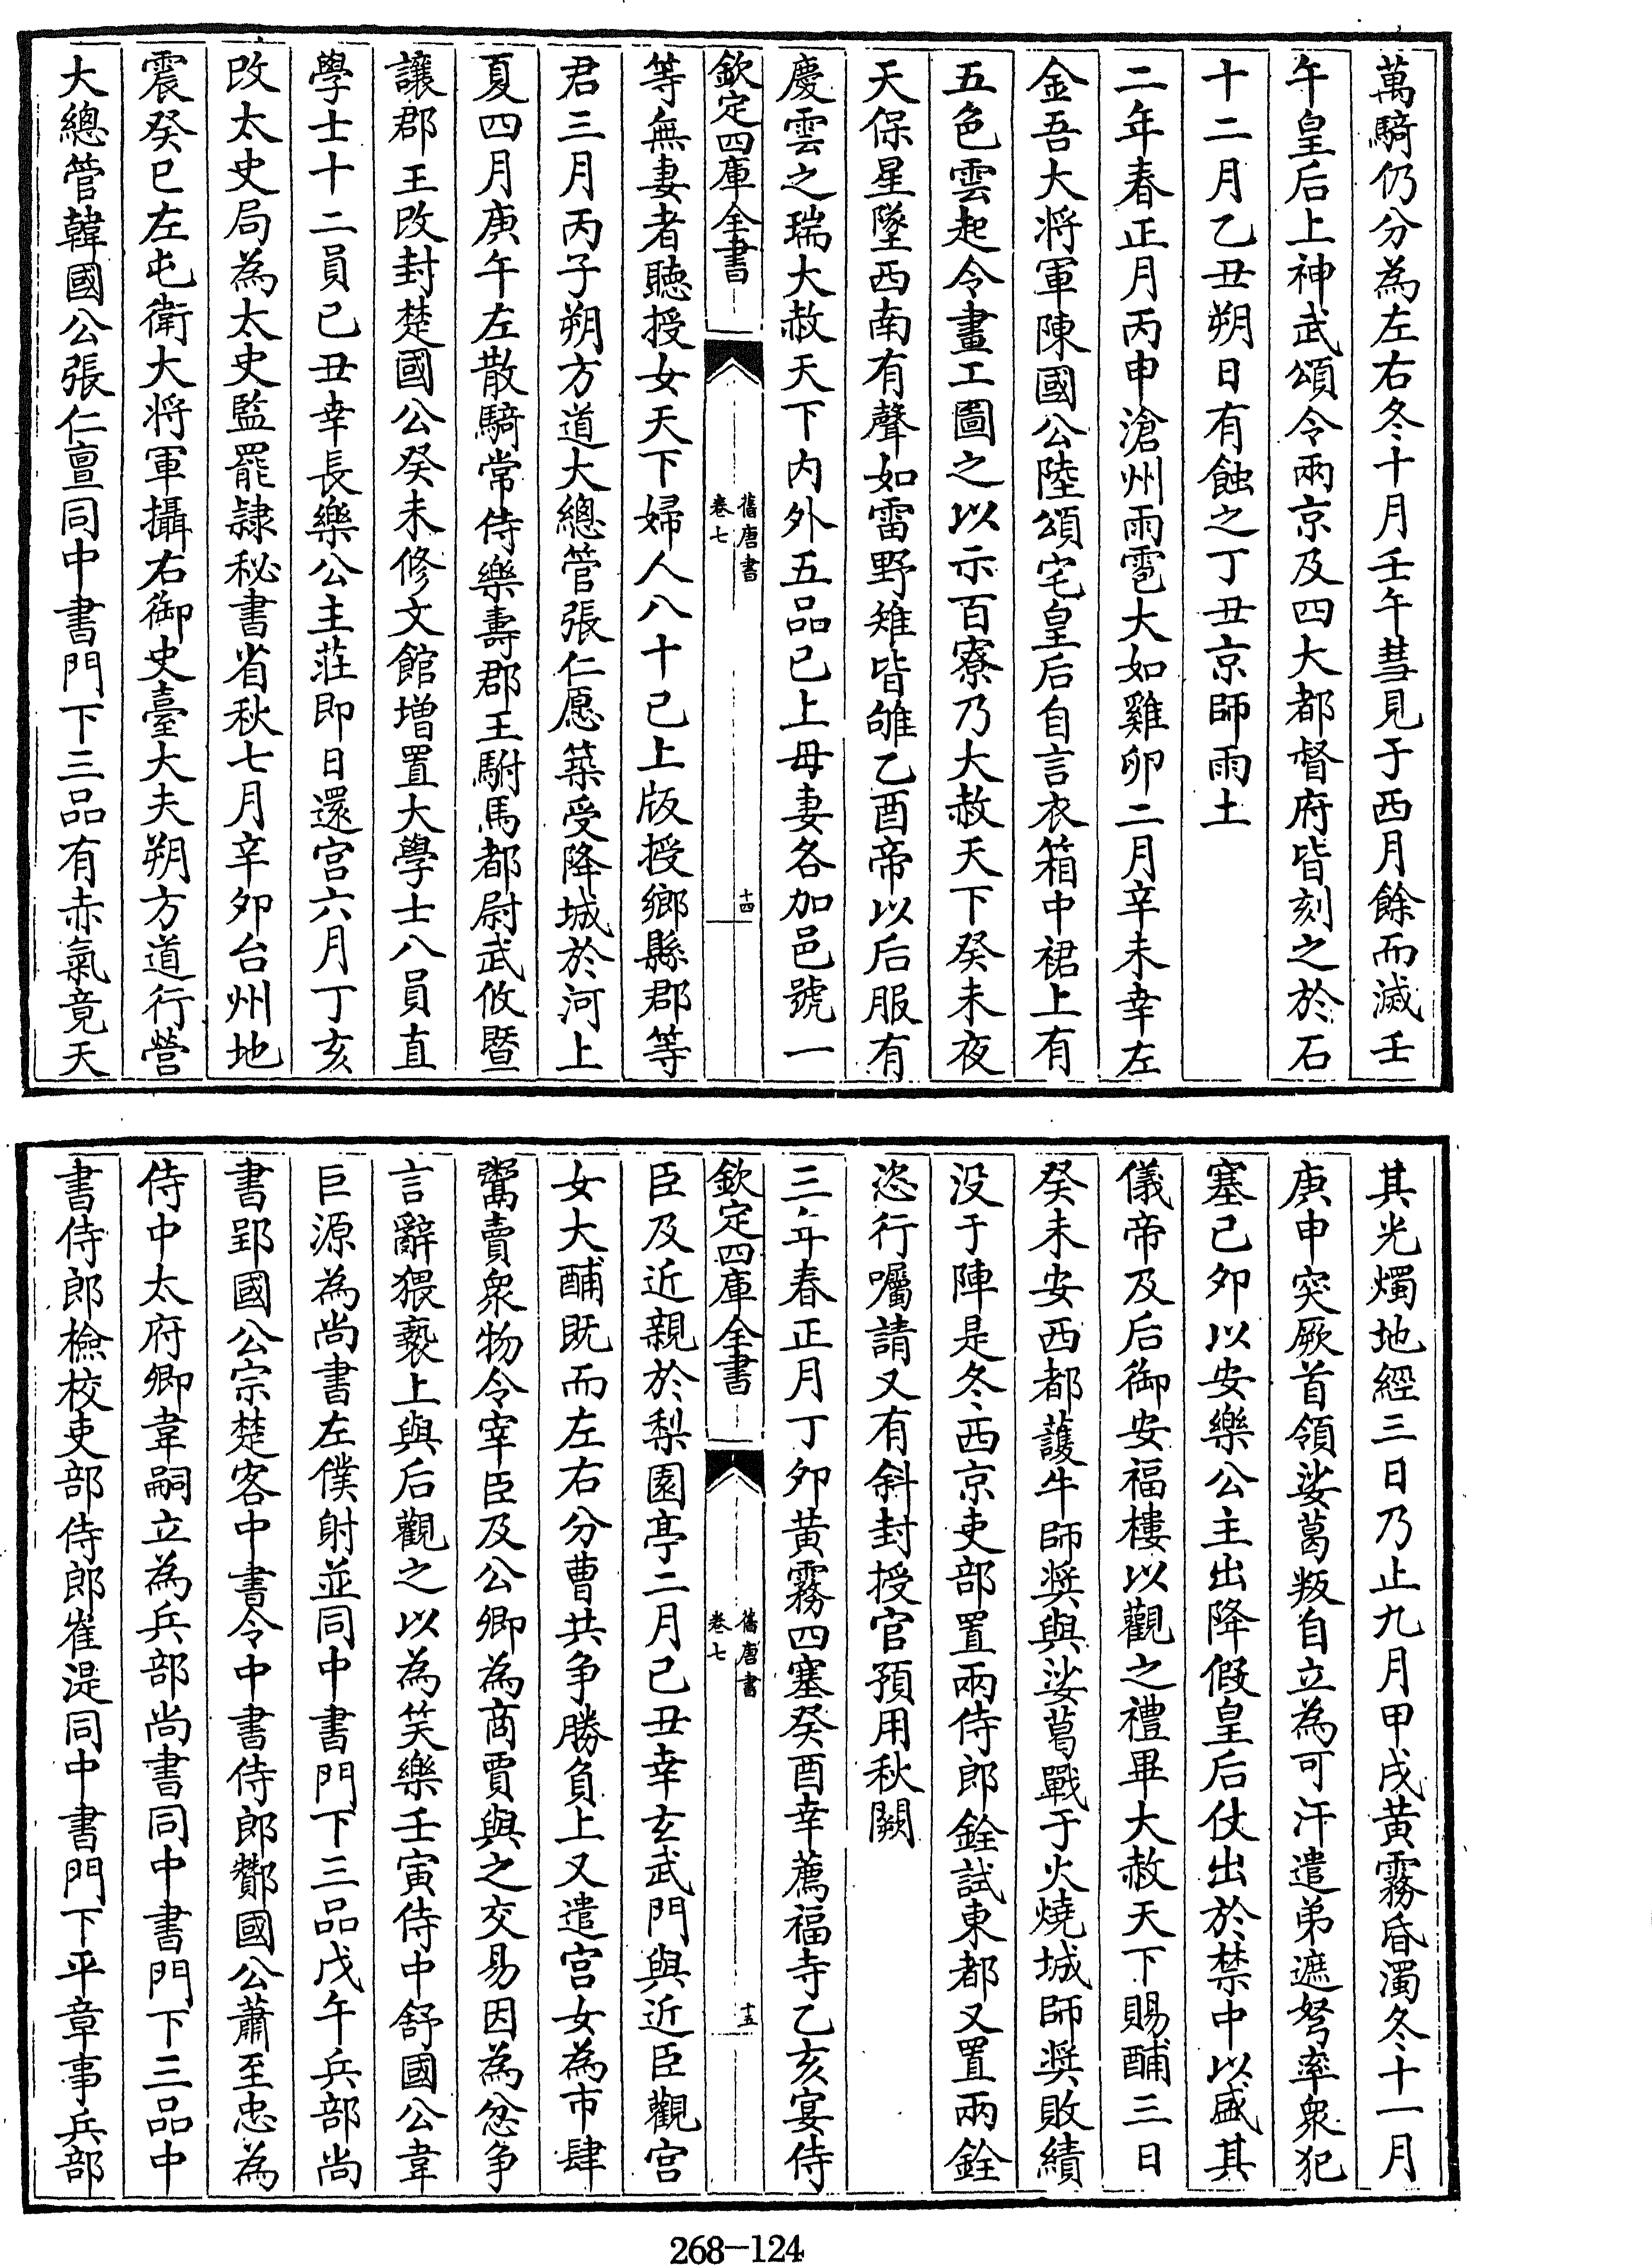 萬騎仍分為左右冬十月壬午彗見于西月餘而滅壬
午皇后上神武頌令兩京及四大都督府皆刻之於石
十二月乙丑朔日有蝕之丁丑京師雨土
二年春正月丙申滄州雨雹大如雞卵二月辛未幸左
金吾大將軍陳國公陸頌宅皇后自言衣箱中裙上有
五色雲起令畫工圖之以示百寮乃大赦天下癸未夜
天保星墜西南有聲如雷野雉皆雊乙酉帝以后服有
慶雲之瑞大赦天下內外五品已上母妻各加邑號一
欽定四庫全書
舊唐書
卷七
十四
等無妻者聽授女天下婦人八十已上版授鄉縣郡等
君三月丙子朔方道大總管張仁愿築受降城於河上
夏四月庚午左散騎常侍樂壽郡王駙馬都尉武攸暨
讓郡王改封楚國公癸未修文館增置大學士八員直
學士十二員己丑幸長樂公主莊即日還宮六月丁亥
改太史局為太史監罷隸秘書省秋七月辛夘台州地
震癸巳左屯衛大將軍攝右御史臺大夫朔方道行營
大總管韓國公張仁亶同中書門下三品有赤氣竟天
其光燭地經三日乃止九月甲戌黃霧昏濁冬十一月
庚申突厥首領娑葛叛自立為可汗遣弟遮弩率衆犯
塞己夘以安樂公主出降假皇后仗出於禁中以盛其
儀帝及后御安福樓以觀之禮畢大赦天下賜酺三日
癸未安西都護牛師奬與娑葛戰于火燒城師奬敗績
没于陣是冬西京吏部置兩侍郎銓試東都又置兩銓
恣行囑請又有斜封授官預用秋闕
三年春正月丁夘黃霧四塞癸酉幸薦福寺乙亥宴侍
欽定四庫全書
舊唐書
卷七
十五
臣及近親於梨園亭二月己丑幸玄武門與近臣觀宮
女大酺既而左右分曹共爭勝負上又遣宮女為市肆
鬻賣衆物令宰臣及公卿為商賈與之交易因為忿爭
言辭猥褻上與后觀之以為笑樂壬寅侍中舒國公韋
巨源為尚書左僕射並同中書門下三品戊午兵部尚
書郢國公宗楚客中書令中書侍郎酇國公蕭至忠為
侍中太府卿韋嗣立為兵部尚書同中書門下三品中
書侍郎檢校吏部侍郎崔湜同中書門下平章事兵部
268-124